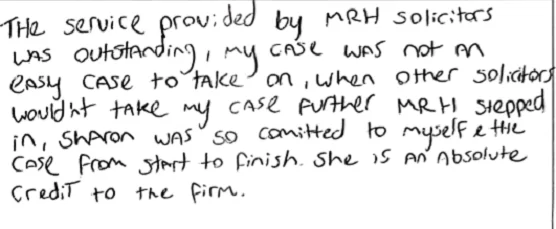 The service provided by MRH solicitors
was outstanding, my case was not an
easy case to take on, when other solicitors
wouldnt take my case further MRH stepped
in, Sharon was so comitted to myself & the
case from start to finish. She is an Absolute
credit to the firm.